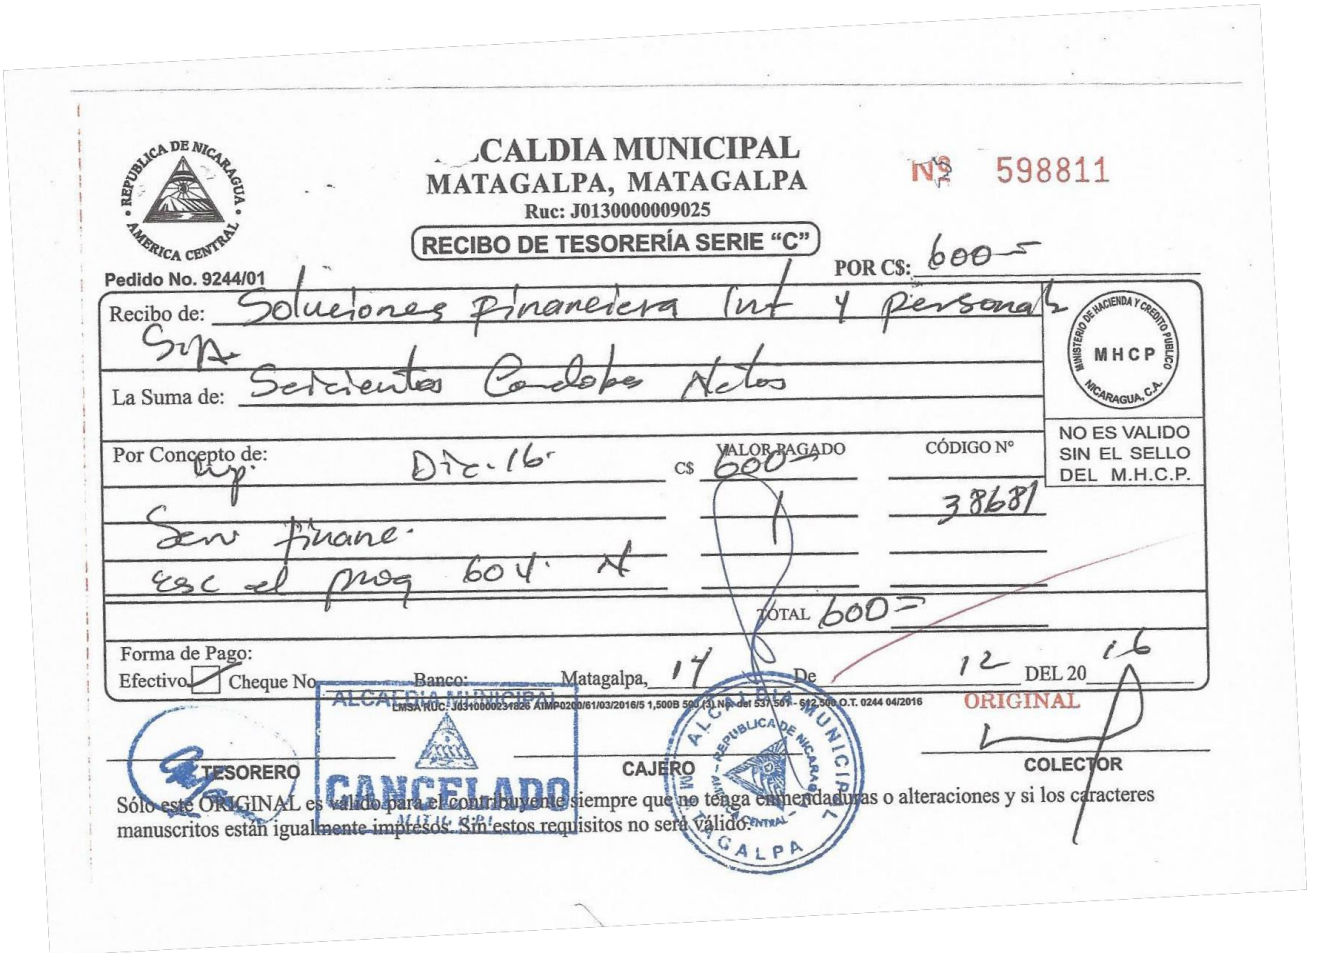 REPUBLICA DE NICARAGUA
AMERICA CENTRAL
CALDIA MUNICIPAL
MATAGALPA, MATAGALPA
Ruc: J0130000009025
RECIBO DE TESORERÍA SERIE “C”
Nº 598811
Pedido No. 9244/01
POR C$: 600
Recibo de: Soluciones Financiera Int y personal
La Suma de: Seicientos Cordobas Netos
MINISTERIO DE HACIENDA Y CREDITO PUBLICO
MHCP
NICARAGUA, C.A.
NO ES VALIDO
SIN EL SELLO
DEL M.H.C.P.
Por Concepto de: Dic. 16
C$ VALOR PAGADO 600
CÓDIGO Nº
38681
Serv financ.
TOTAL 600
Forma de Pago:
Efectivo Cheque No. Banco: Matagalpa, 14 De 12 DEL 20 16
ORIGINAL
ALCALDIA MUNICIPAL
CANCELADO
ALCALDIA MUNICIPAL
REPUBLICA DE NICARAGUA
MATAGALPA
TESORERO
CAJERO
COLECTOR
Sólo este ORIGINAL es válido para el contribuyente siempre que no tenga enmendaduras o alteraciones y si los caracteres
manuscritos están igualmente impresos. Sin estos requisitos no será válido.